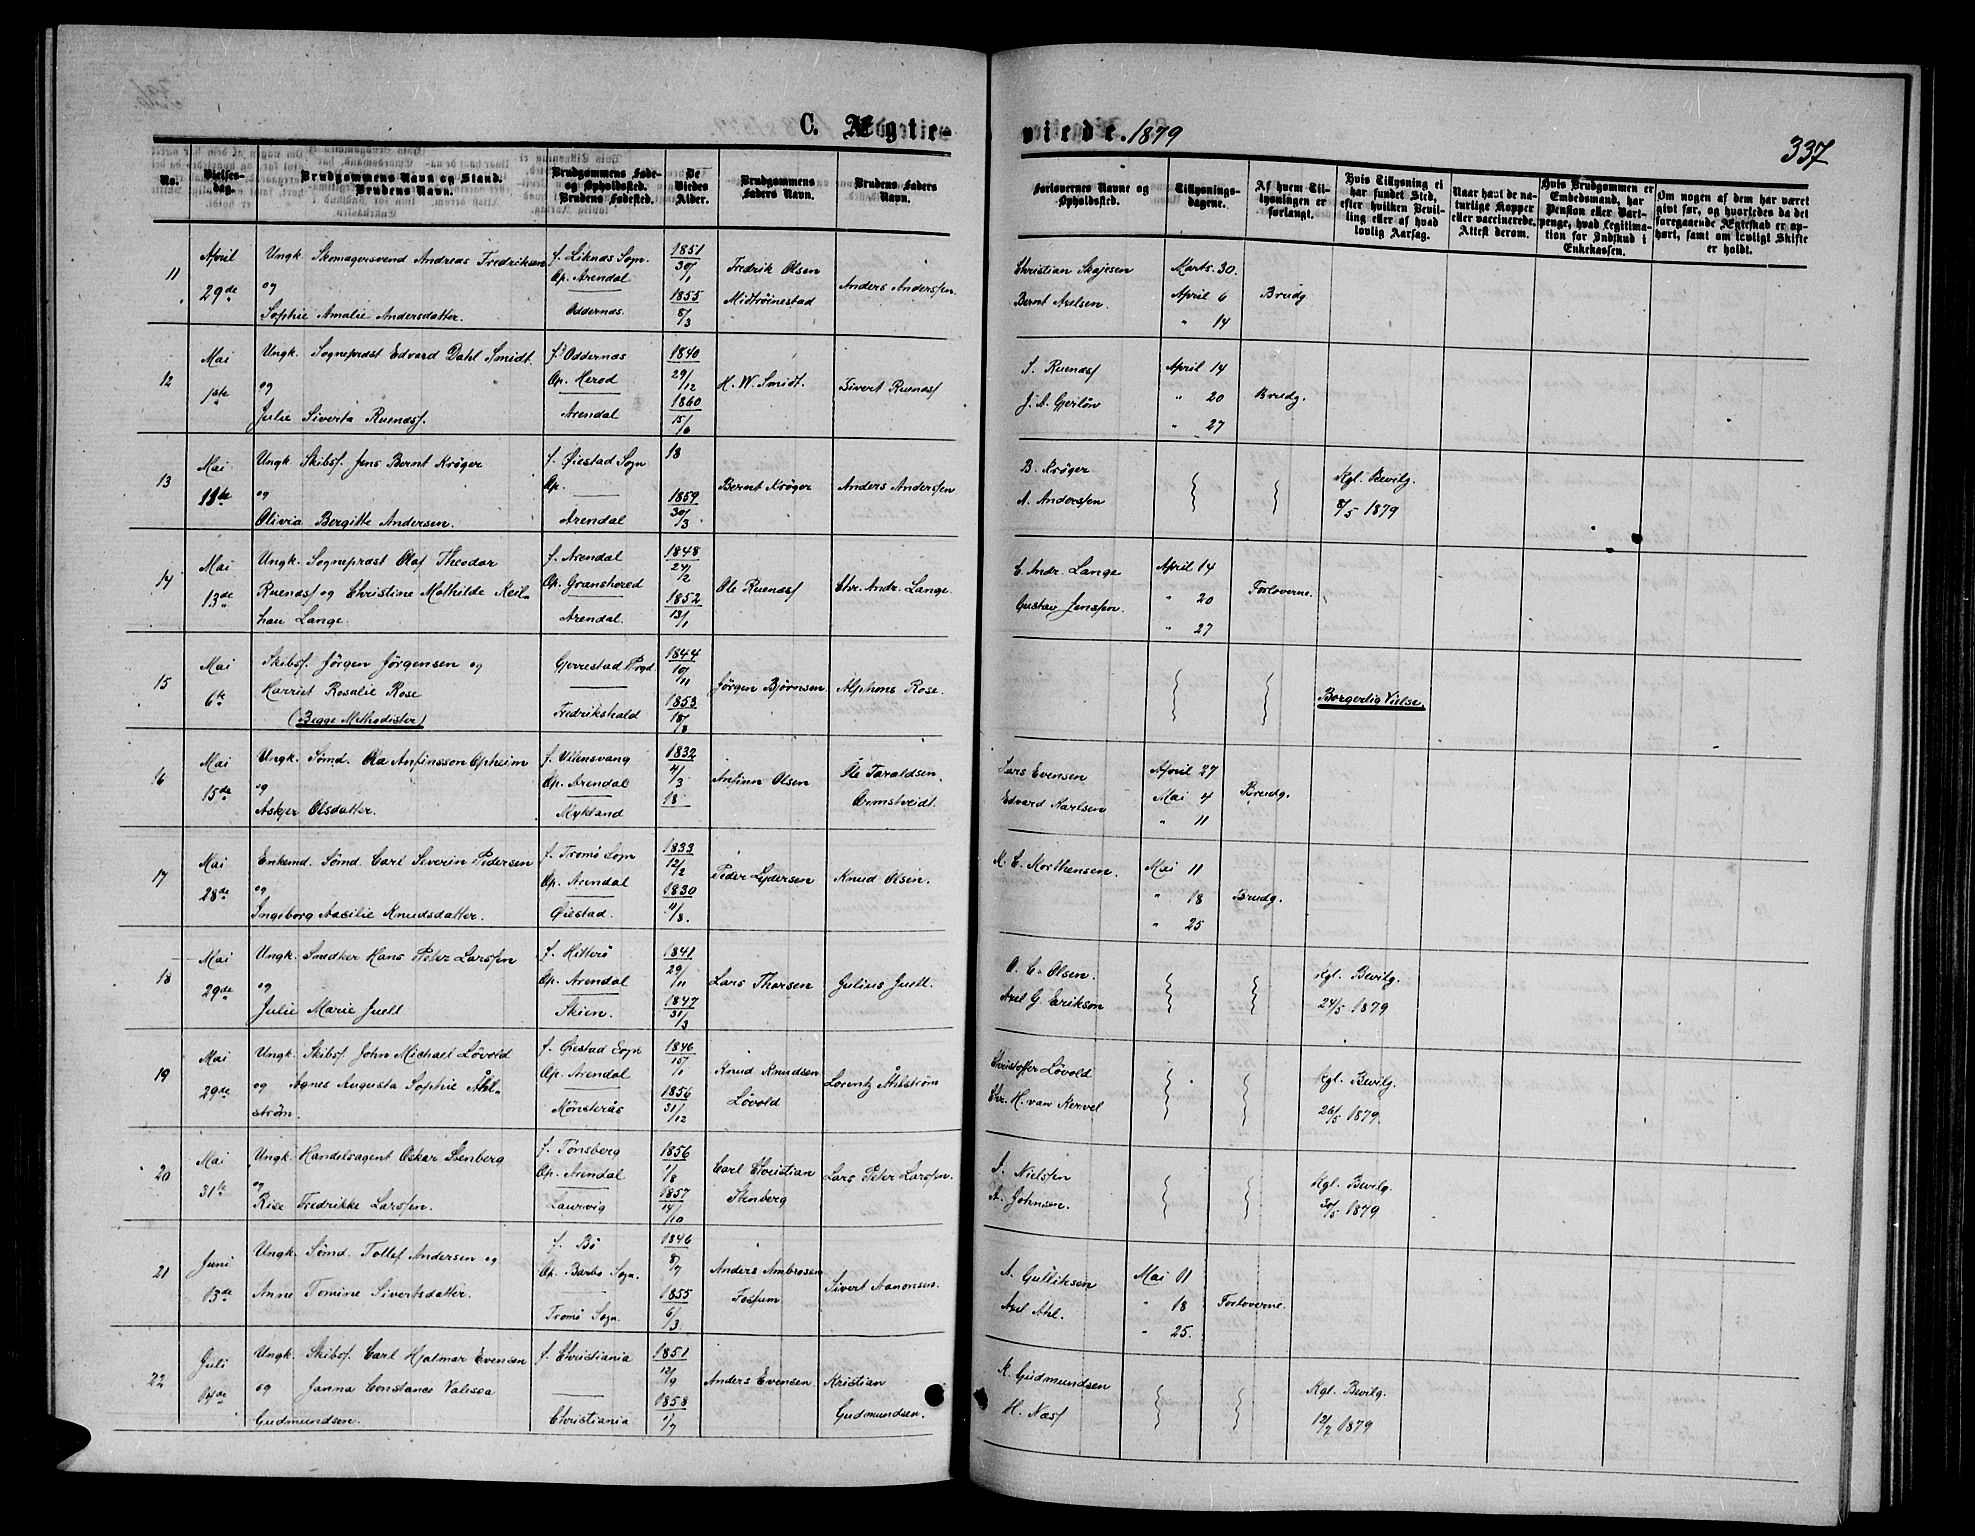 C. Ægtie-
viede. 1879
337
No.
Vielses-dag.
Brudgommens Navn og Stand.
Brudens Navn.
Brudgommens Føde- og Opholdssted.
Brudens Fødested.
De Viedes Alder.
Brudgommens Faders Navn.
Brudens Faders Navn.
Forlovernes Navne og Opholdssted.
Tillysnings-dagene.
Af hvem Til-lysningen er forlangt.
Hvis Tillysning ei har fundet Sted, efter hvilken Bevil-ling eller af hvad lovlig Aarsag.
Naar havt de na-turlige Kopper eller vaccinerede. Attest derom.
Hvis Brudgommen er Embedsmand, har Pension eller Vart-penge, hvad Legitima-tion for Indskud i Enkekassen.
Om nogen af dem har været givt før, og hvorledes da det foregaaende Ægteskab er op-hørt, samt om lovligt Skifte er holdt.
11
April
29de
Ungk. Skomagersvend Andreas Fredriksen
og
Sophie Amalie Andersdatter.
f. Liknæs Sogn.
Op. Arendal
Oddernæs.
1851
30/1
1855
8/3
Fredrik Olsen
Midtrøinestad
Anders Anderssen.
Christian Skajesen
Bernt Axelsen.
Marts. 30.
April 6
" 14
Brudg
12
Mai
1ste
Ungk. Sognepræst Edvard Dahl Smidt.
og
Julie Siverta Ruenæss.
f. Oddernæs
Op. Herød
Arendal
1840
29/12
1860
15/6
H. W. Smidt.
Sivert Ruenæss
S. Ruenæss
J. A. Gjerløv
April 14
" 20
" 27
Brudg.
13
Mai
13de
Ungk. Skibsf. Jens Bernt Krøger
og
Olivia Bergitte Andersen.
f. Øiestad Sogn
Op.
Arendal
18
1859
30/3
Bernt Krøger
Anders Anderssen
B. Krøger
A. Anderssen
Kgl. Bevilg.
8/5 1879
14
Mai
13de
Ungk. Sognepræst Olaf Theodor
Ruenæss og Christine Mathilde Keil-
hau Lange.
f. Arendal
Op. Granshered
Arendal.
1848
24/2
1852
13/1
Ole Ruenæss
Chr. Andr. Lange.
C. Andr. Lange
Gustav Jenssen.
April 14
" 20
" 27
Forloverne.
15
Mai
6te
Skibsf. Jørgen Jørgensen og
Harriet Rosalie Rose
(Begge Methodister)
Gjerrestad Prgd.
Fredrikshald
1844
10/11
1853
18/8
Jørgen Bjørnsen
Alphons Rose.
Borgerlig Vielse.
16
Mai
15de
Ungk. Sømd. Ola Anfinsson Opheim
og
Askjer Olsdatter.
f. Ullensvang
Op. Arendal
Mykland
1832
4/3
18
Anfinn Olsen
Ole Taraldsen.
Ormstveidt.
Lars Evensen
Edvard Karlsen
April 27
Mai 4
" 11
Brudg.
17
Mai
28de
Enkemd. Sømd. Carl Severin Pedersen
og
Ingeborg Aasilie Knudsdatter.
f. Tromø Sogn
Op. Arendal
Øiestad.
1833
12/2
1830
11/8.
Peder Lydersen
Knud Olsen.
M. C. Morthensen.
Mai 11
" 18
" 25
Brudg.
18
Mai
29de
Ungk. Snedker Hans Peter Larssen
og
Julie Marie Juell
f. Hitterø
Op. Arendal
Skien.
1841
29/11
1847
31/3
Lars Thorsen
Gulius Juell.
O. C. Olsen.
Axel G. Erikson
Kgl. Bevilg.
24/5 1879
19
Mai
29de
Ungk. Skibsf. John Michael Løvold
og Agnes Augusta Sophie Åhl-
strøm.
f. Øiestad Sogn
Op. Arendal
Mönsterås
1846
15/1
1856
31/12
Knud Knudsen
Løvold
Lorentz Åhlstrøm
Christoffer Løvold
Chr. H. van Kervel
Kgl. Bevilg.
26/5 1879.
20
Mai
31te
Ungk. Handelsagent Oskar Stenberg
og
Rise Fredrikke Larssen.
f. Tønsberg
Op. Arendal
Laurvig
1856
1/8
1857
14/10
Carl Christian
Stenberg
Lars Peter Larssen.
S. Nielssen
A. Johnsen.
Kgl. Bevilg.
30/5 1879
21
Juni
13de
Ungk. Sømd. Tollef Andersen og
Anne Tomine Sivertsdatter.
f. Bø
Op. Barbo Sogn.
Tromø Sogn.
1846
8/7
1855
6/3.
Anders Ambrosen
Fostum
Sivert Aanonsen.
A. Gulliksen
Axel Ahl.
Mai 11
" 18
" 25.
Forloverne.
22
Juli
14de
Ungk. Skibsf. Carl Hjalmar Evensen
og Janna Constance Valisca
Gudmundsen.
f. Christiania
Christiania
1851
12/9
1858
1/7
Anders Evensen
Kristian
Gudmundsen.
K. Gudmundsen
H. Næss
Kgl. Bevilg.
12/7 1879